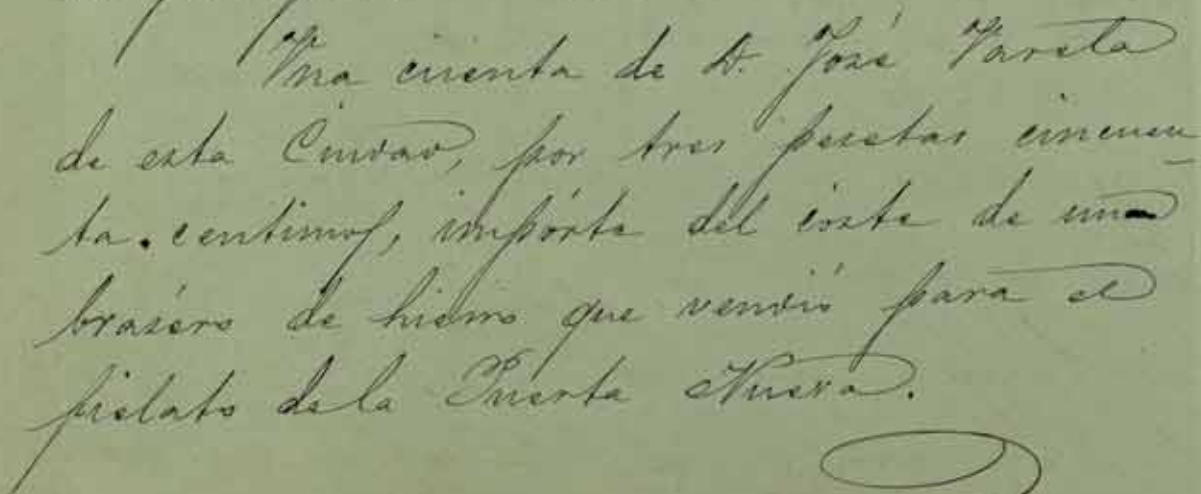 Una cuenta de D. José Varela
de esta Ciudad, por tres pesetas cincuen
ta centimos, importe del coste de un
brasero de hierro que vendió para el
fielato de la Puerta Nueva.